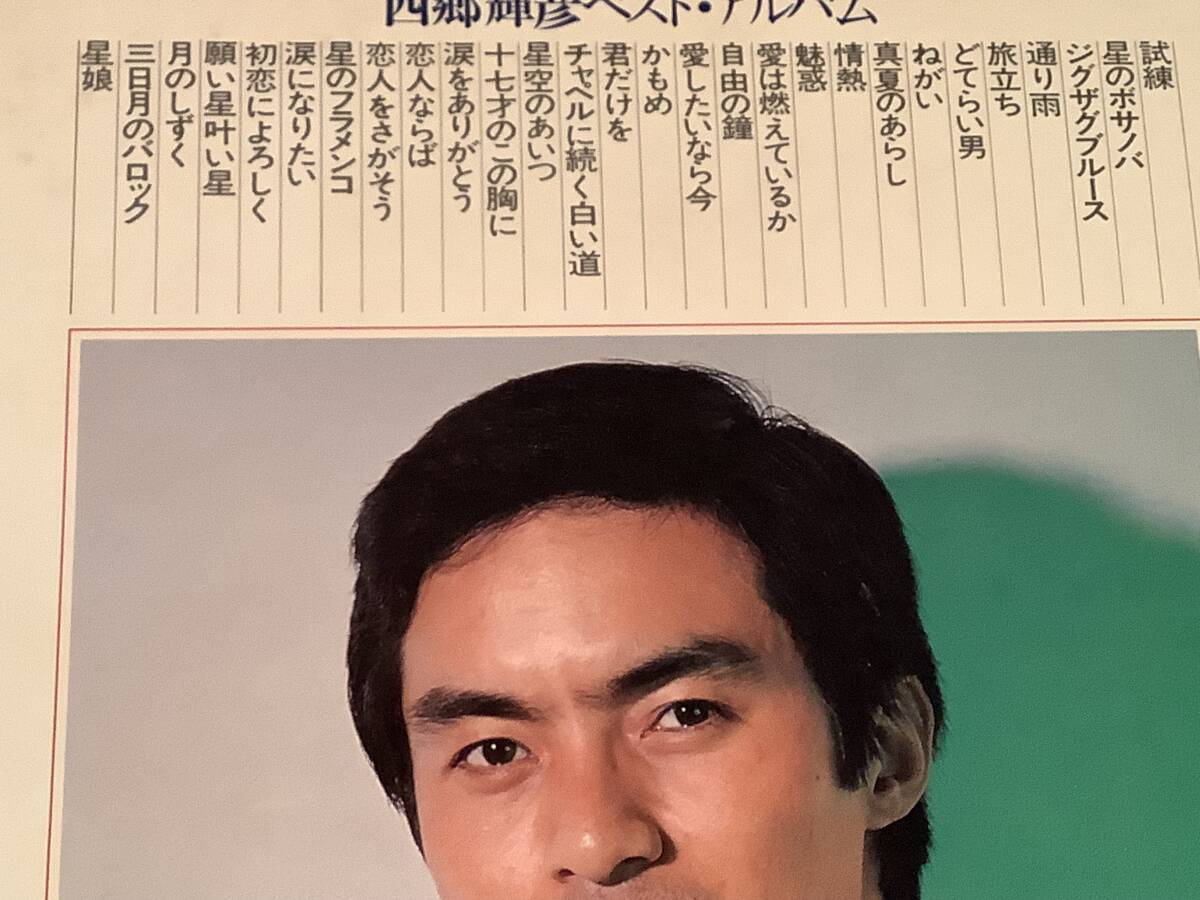 西郷輝彦ベスト・アルバム
試練
星のボサノバ
ジグザグブルース
通り雨
旅立ち
どてらい男
ねがい
真夏のあらし
情熱
魅惑
愛は燃えているか
自由の鐘
愛したいなら今
かもめ
君だけを
チャペルに続く白い道
星空のあいつ
十七才のこの胸に
涙をありがとう
恋人ならば
恋人をさがそう
星のフラメンコ
涙になりたい
初恋によろしく
願い星叶い星
月のしずく
三日月のバロック
星娘